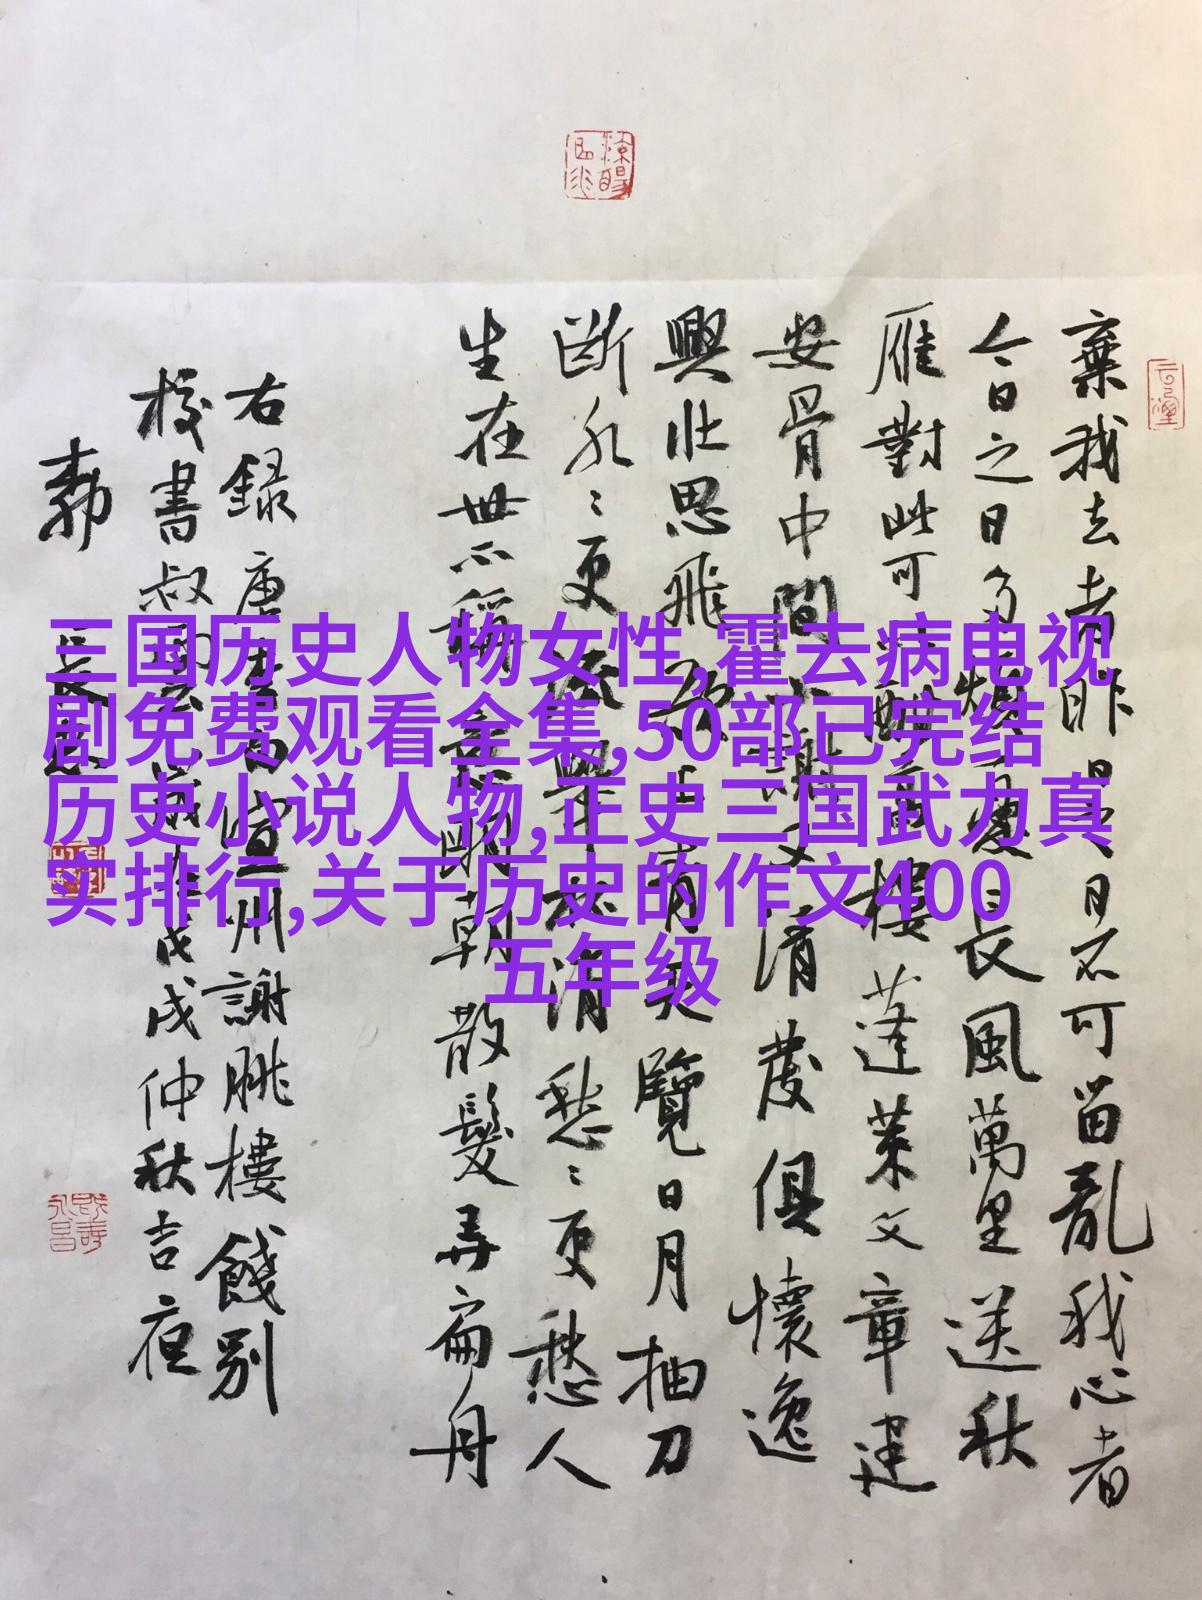 棄我去者昨日之日不可留亂我心者
今日之日多煩憂長風萬里送秋
雁對此可以酣高樓蓬萊文章建
安骨中間小謝又清發俱懷逸
興壯思飛欲上青天覽日月抽刀
斷水〻更流舉杯消愁〻更愁人
生在世不稱意明朝散髮弄扁舟
右錄唐李白宣州謝朓樓餞別
校書叔雲歲在戊戌仲秋吉夜
三国历史人物女性,霍去病电视
剧免费观看全集,50部已完结
历史小说人物,正史三国武力真
实排行,关于历史的作文400
五年级